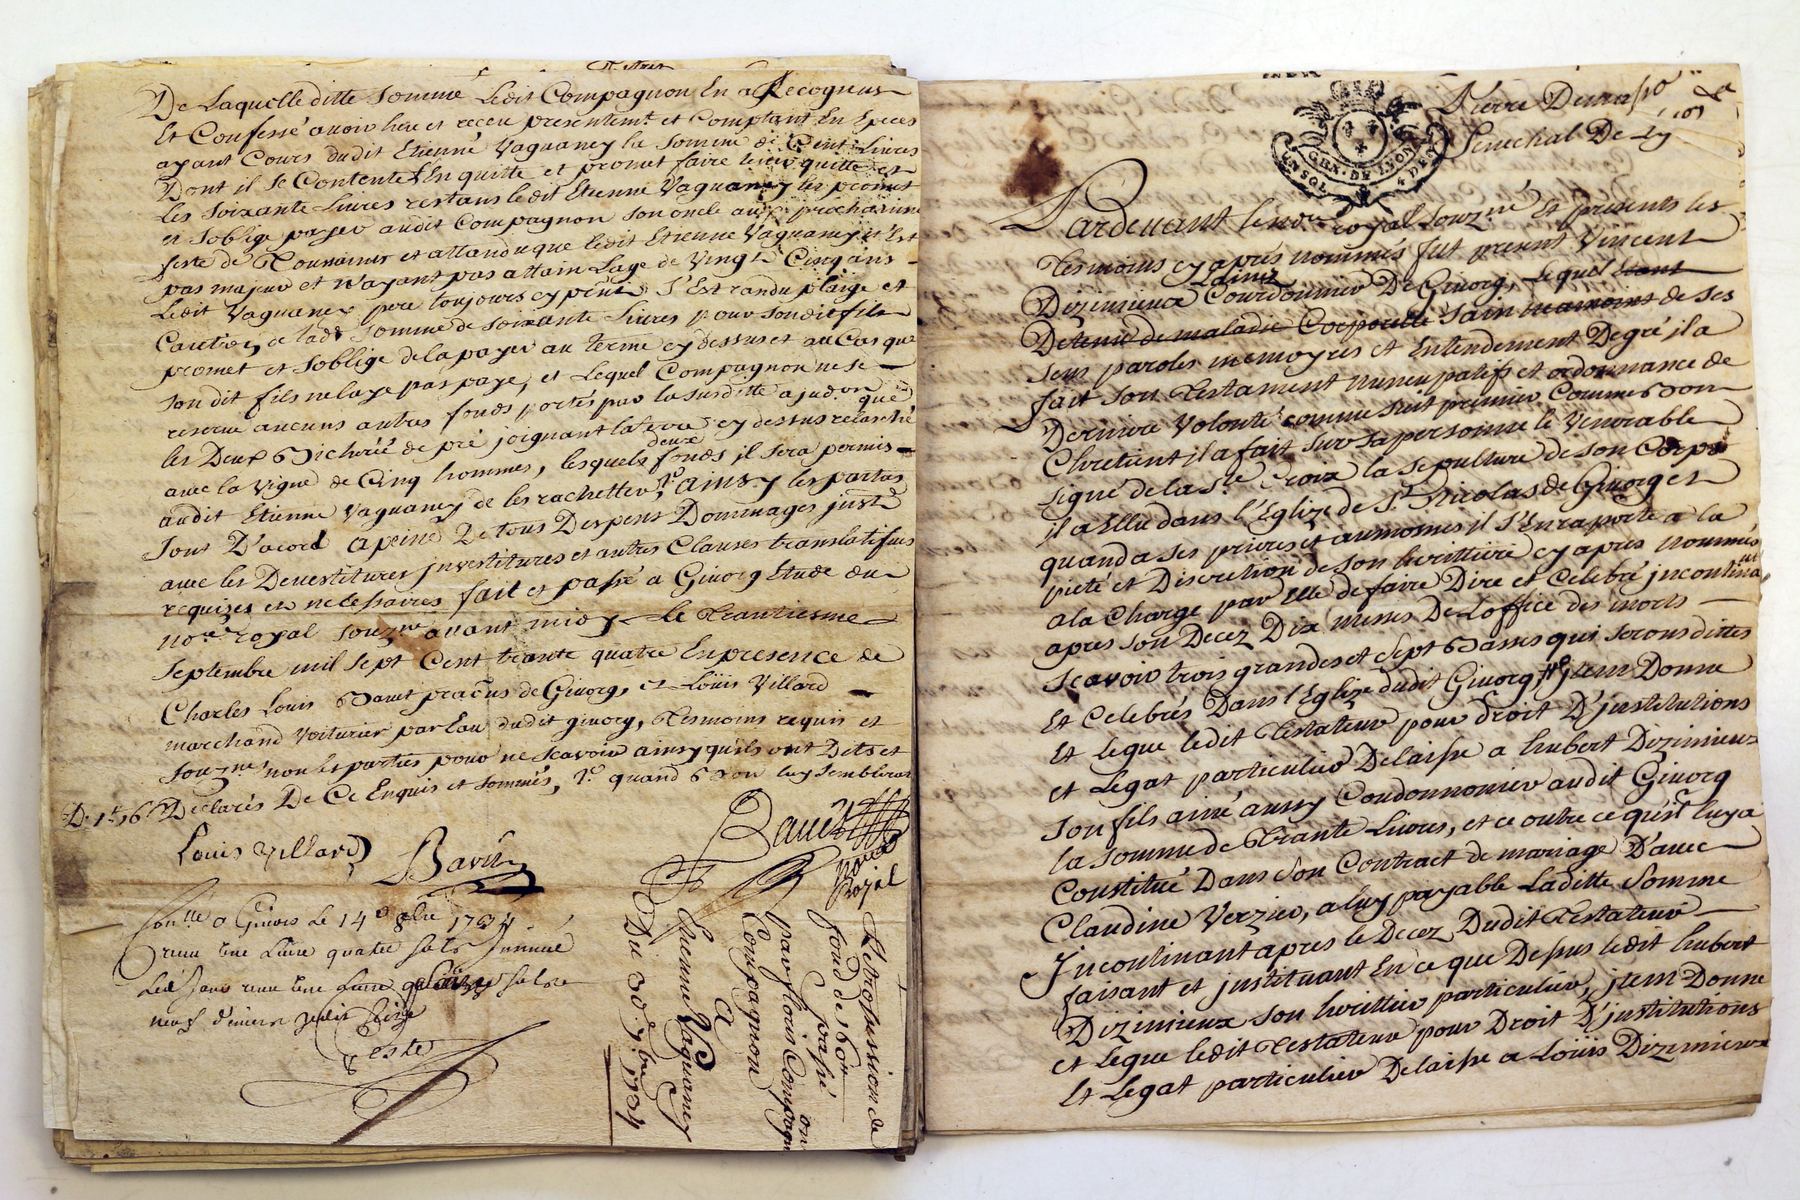 De Laquelle ditte Somme Ledit Compagnon En a Recognus
Et Confessé avoir heu et receu presentemt. et Comptant En Especes
ayant Cours dudit Etienne Vaguaney la Somme de Cent Livres
Dont il Se Contente En quitte et promet faire tenir quitte et
Les Soixante Livres restans ledit Etienne Vaguaney les promet
et S'oblige payer audit Compagnon Son oncle aux prochaine
feste de Toussaints et attandu que ledit Etienne Vaguaney n'Est
pas majeur et n'ayant pas attain Lage de Vingt Cinq ans
Ledit Vaguaney pere toujours cy pnt S'Est randu plaige et
Caution de ladt Somme de Soixante Livres pour Sondit fils
promet et Soblige de la payer au terme cy dessus et au Cas que
Son dit fils ne laye pas payé, et Lequel Compagnon ne se
reserve aucuns autres fonds portés par la susditte ajudon que
les Deux Bicherée de pré joignant la terre cy dessus relasché
avec la Vigne de Cinq hommes, lesquels deux fonds il sera permis
audit Etienne Vaguaney de les rachetter, ainsy les parties
Sont D'acord a peine De tous Despens Dommages
avec les Devestitures Investitures et autres Clauses translatifves
requizes et necessaires fait et passé a Givorg Etude du
nore royal Souzné avant midy Le Trantiesme
Septembre mil Sept Cent trante quatre En presence de
Charles Louis de Givorg, et Loüis Villard
marchand Voiturier par Eau dudit givorg, Tesmoins requis et
Souzné non les parties pour ne Scavoir ainsy qu'ils ont Dits et
Declarés De Ce Enquis et Sommés, quand Bon luy Semblera
Louis Villard
Bavet
Bavet
Nore
Royal
Conlle a Givors Le 14e 8bre 1734
receu une Livre quatre sols
neuf deniers
Retrocession de
fond de 160lt
passé
par Louis Compagnon
Compagnon
A
Etienne Vaguaney
Du 30e 7bre 1734
Pierre
Senechal De Ly
GEN. DE LYON
UN SOL 4 DEN
Pardevant le nore royal Souzné Et presents les
Tesmoins cy apres nommés fut present Vincent
Dizimieux Courdonnier De Givorg, Lequel Etant
Detenu de maladie Corporelle Sain neamoint de Ses
Sens paroles memoyres et Entendement De gré il a
fait Son Testament nuncupatifs et ordonnance de
Derniere Volonté comme Suit premier Comme Bon
Chretient il a fait Sur Sa personne le Venerable
Signe de la Ste Croix la Sepulture de Son Corps
il a Ellu dans l'Eglize de St Nicolas de Givorg et
quand a Ses prieres et aumones il S'En raporte a la
pieté et Discretion de Son herittiere cy apres nommée
a la Charge par Elle de faire Dire et Celebré incontinant
apres Son Decez Dix messes De L'office des morts
Scavoir trois grandes et Sept Basses qui Seront dittes
Et Celebrés Dans l'Eglize dudit Givorg, Item Donne
Et Legue ledit Testateur pour droit D'institutions
et Legat particulier Delaisse a hubert Dizimieux
Son fils ainé aussy Coudonnier audit Givorg
la Somme de Trante Livres, et ce outre ce qu'il luy a
Constitué Dans Son Contract de mariage D'avec
Claudine Verzier, a luy payable Laditte Somme
Incontinant apres le Decez Dudit Testateur
faisant et instituant En ce que Dessus ledit hubert
Dizimieux Son herittier particulier, Item Donne
et Legue ledit Testateur pour Droit D'institutions
Et Legat particulier Delaisse a Loüis Dizimieux